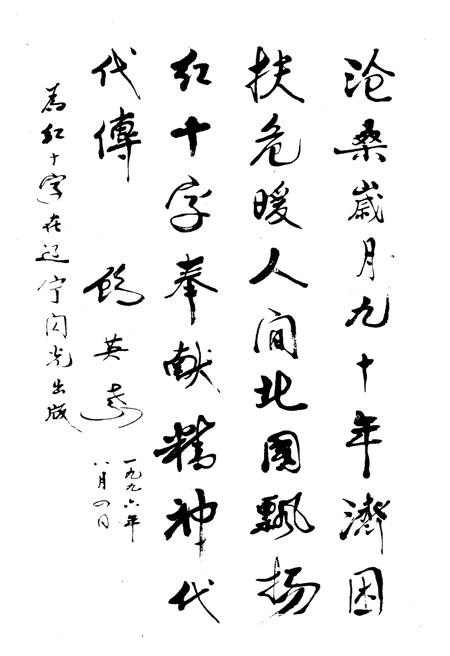 沧桑歲月九十年濟困
扶危暖人间北國飘扬
红十字奉献精神代
代傳 顾英奇
一九九六年
八月四日
為红十字在辽宁闪光出版